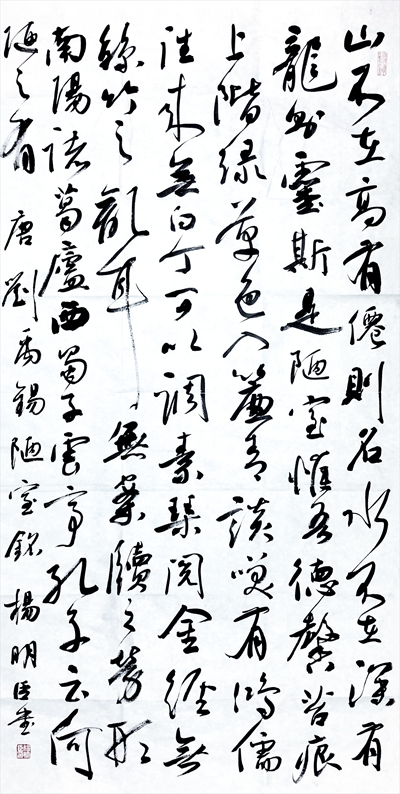 山不在高有僊則名水不在深有
龍則靈斯是陋室惟吾德馨苔痕
上階綠草色入簾青談咲有鴻儒
往來無白丁可以調素琴閱金經無
絲竹之亂耳無案牘之勞形
南陽諸葛廬西蜀子雲亭孔子云何
陋之有 唐劉禹錫陋室銘 楊明臣書